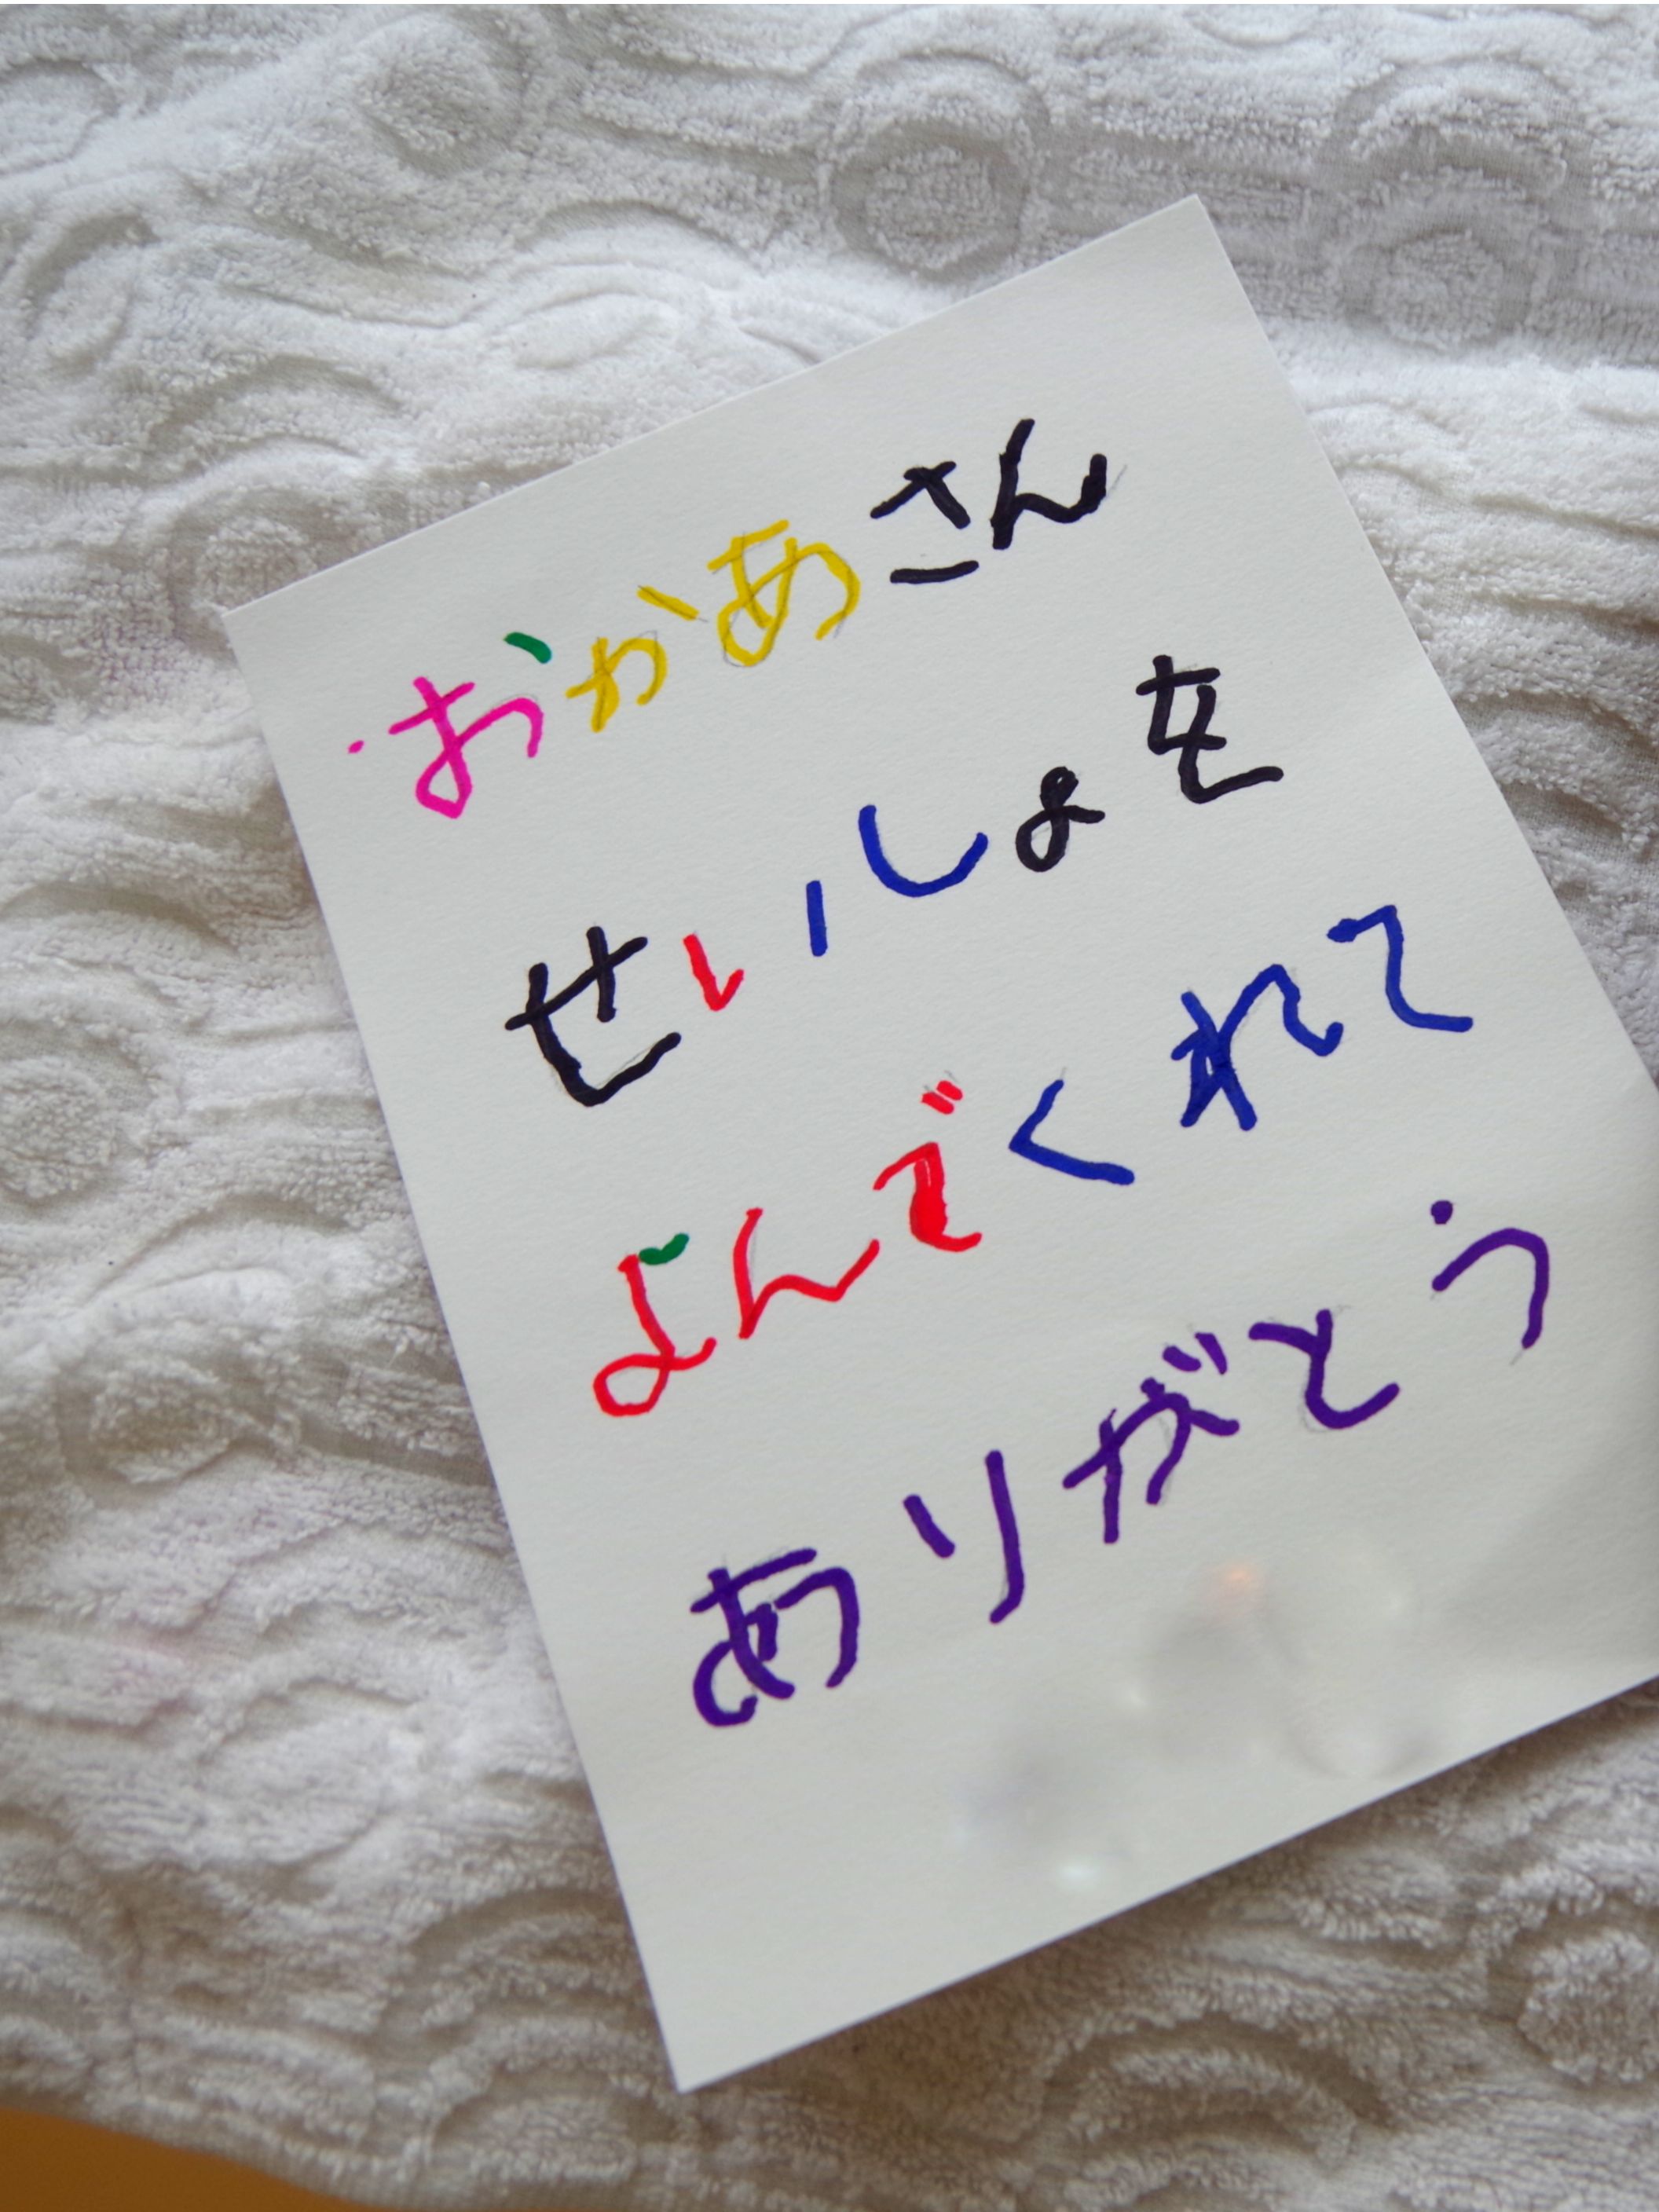 おかあさん
せいしょを
よんでくれて
ありがとう